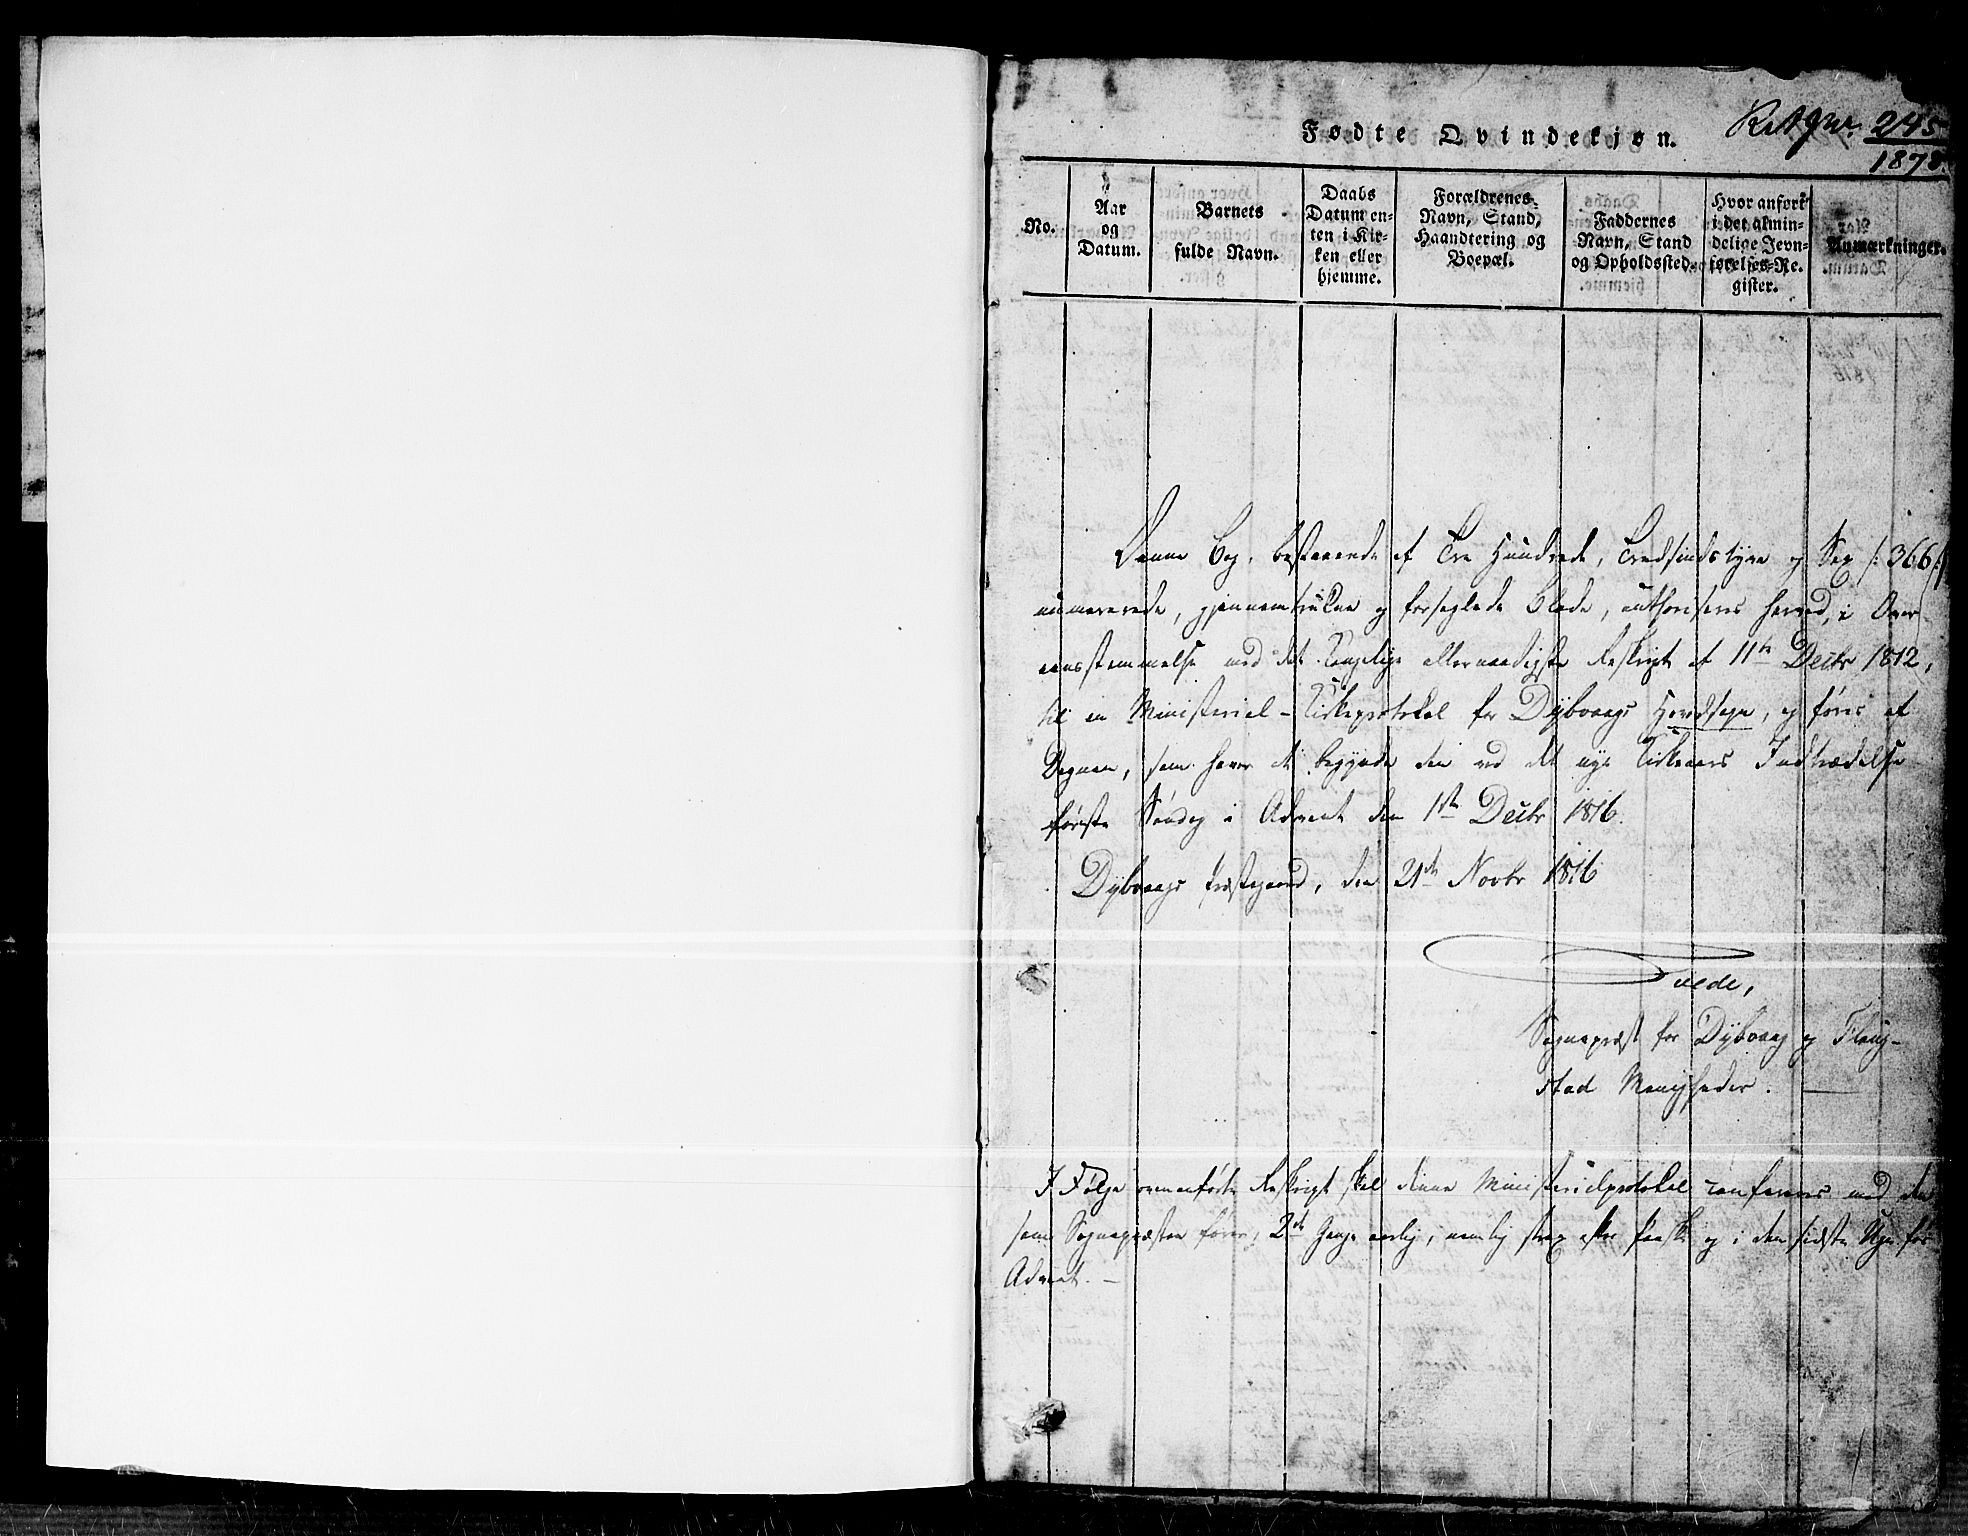 Fødte Qvindekjøn.
245
1878.
No.
Aar
og
Datum.
Barnets
fulde Navn.
Daabs
Datum en-
ten i Kir-
ken eller
hjemme.
Forældrenes
Navn, Stand,
Haandtering og
Boepæl.
Faddernes
Navn, Stand
og Opholdssted.
Hvor anført
i det almin-
delige Jevn-
førelses-Re-
gister.
Anmærkninger.
Denne Bog, bestaaende af Tre Hundrede, Tredsindstyve og Sex /: 366 :/
numererede, gjennemtrukne og forseglede Blade, authoriseres herved, i Over-
eensstemmelse med det Kongelige allernaadigste Reskript af 11te Decbr 1812,
til en Ministerial-Kirkeprotokol for Dybvaags Hovedsogn, og føres af
Degnen, som haver at begynde den ved det nye Kirkeaars Indtrædelse
første Søndag i Advent den 1ste Decbr 1816.
Dybvaags Præstegaard, den 21de Novbr 1816
Sognepræst for Dybvaag og Flang-
stad Menigheder.
I Følge ovenanførte Reskript skal denne Ministerialprotokol confereres med den
som Sognepræsten fører, 2de Gange aarlig, nemlig strax efter Paaske og i den sidste Uge før
Advent. —